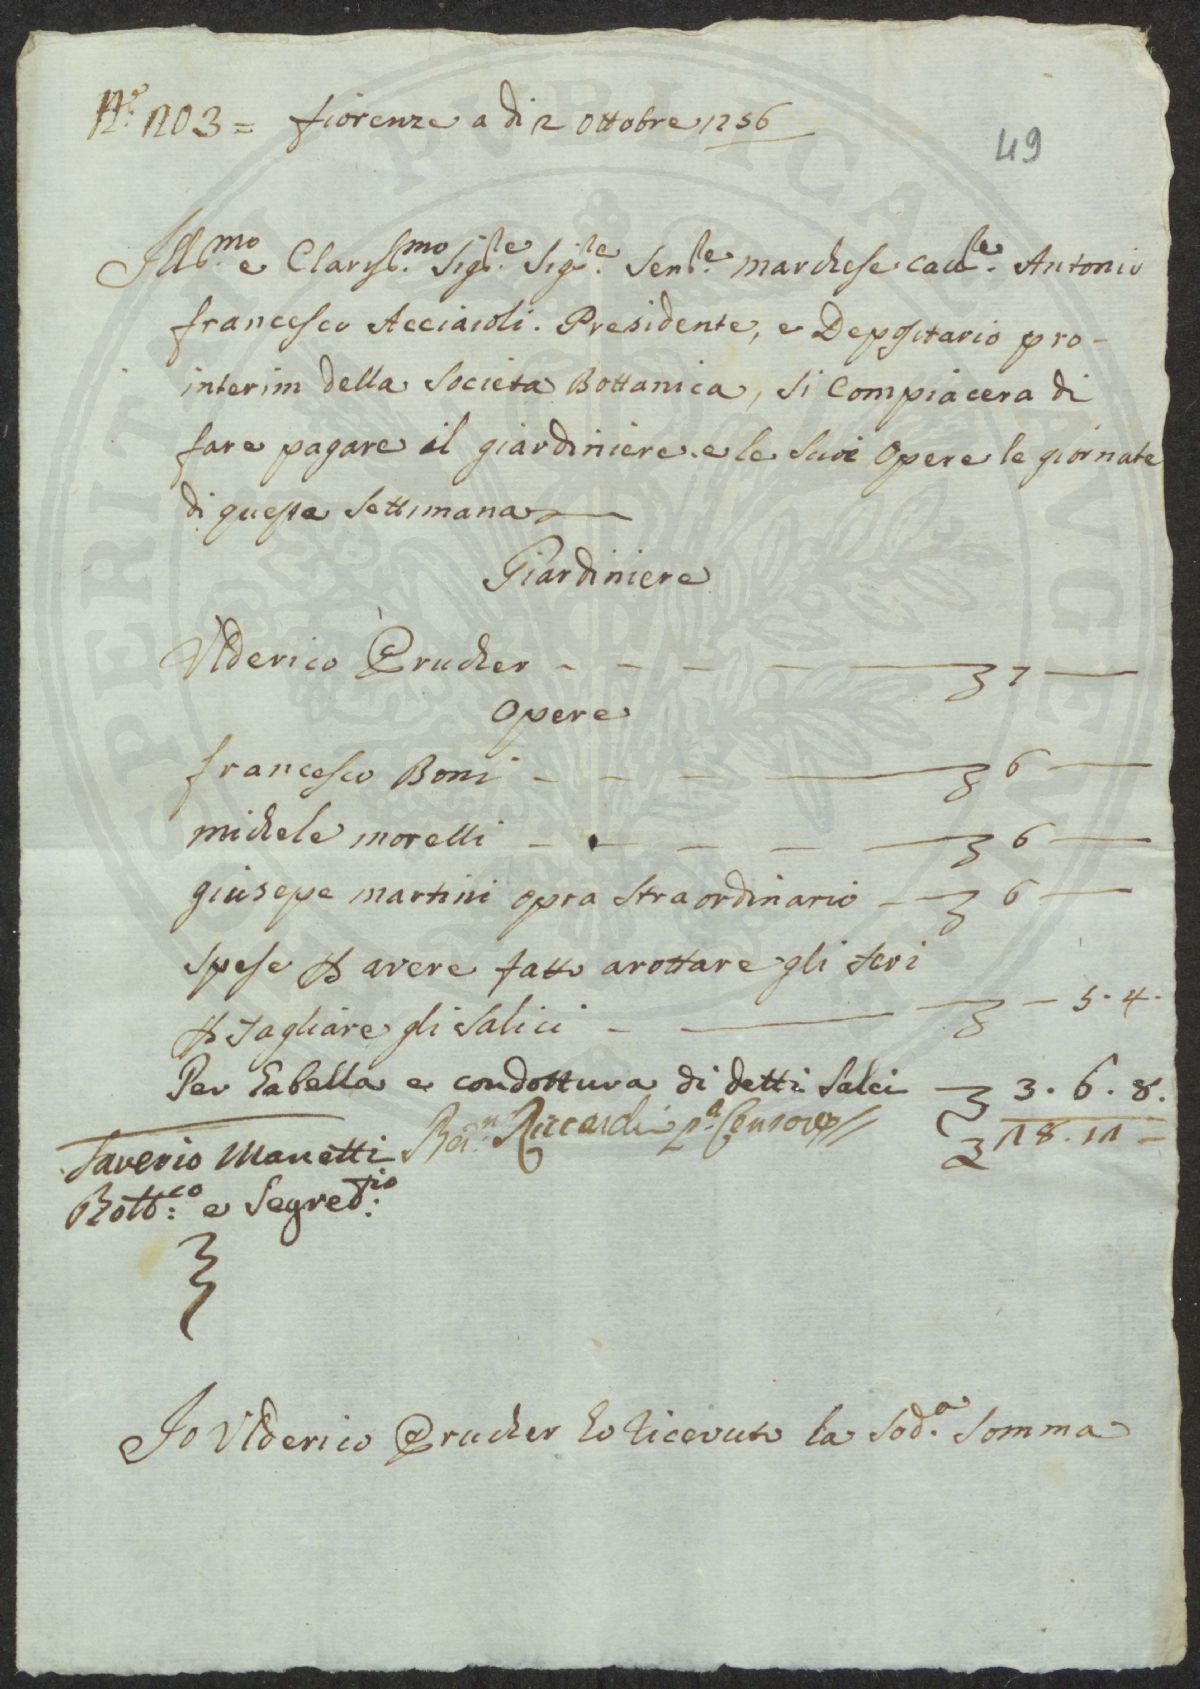 N.° 1203 = fiorenze a di 2 Ottobre 1756
49
Ill.mo e Clariss.mo Sig.re Sig.re Sen.re marchese Cau.re Antonio
francesco Acciaioli. Presidente, e Depositario pro-
interim della Societa Bottanica, si Compiacera di
fare pagare il giardiniere e le Sue Opere le giornate
di questa Settimana
Giardiniere
Vlderico Prucher - - - - 7 -
Opere
francesco Boni - - - - 6 -
michele morelli - - - - 6 -
giusepe martini opra straordinario - - 6 -
spese p avere fatto arottare gli feri
p tagliare gli Salici - - - 5. 4.
Per Gabella e condottura di detti Salci - 3. 6. 8.
18. 11 -
Saverio Manetti Riccardi p.o Censore
Bott.co e Segret.rio
Io Vlderico Prucher ho ricevuto la Sod.a Somma